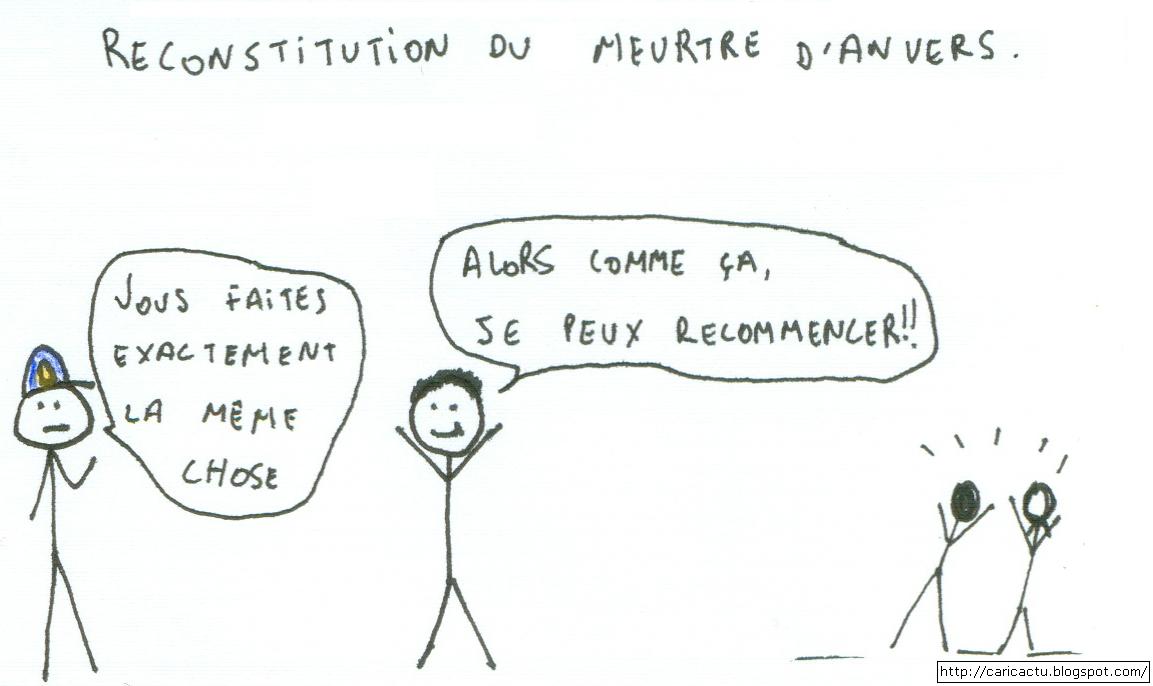 RECONSTITUTION DU MEURTRE D'ANVERS.
VOUS FAITES
EXACTEMENT
LA MÊME
CHOSE
ALORS COMME ÇA,
JE PEUX RECOMMENCER!!
http://caricactu.blogspot.com/